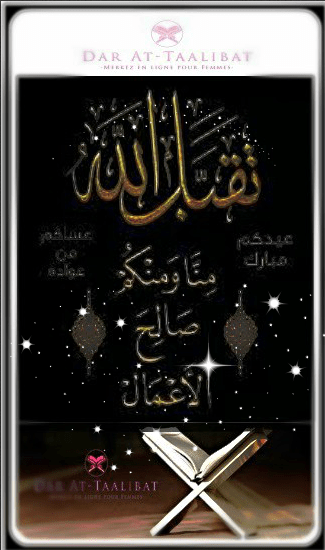 DAR AT-TAALIBAT
-MERKEZ EN LIGNE POUR FEMMES-
تَقَبَّلَ اللهُ
عيدكم
مبارك
عساكم
من
عواده
مِنَّا وَمِنْكُمْ
صَالِحَ
الأَعْمَالِ
DAR AT-TAALIBAT
MERKEZ EN LIGNE POUR FEMMES-